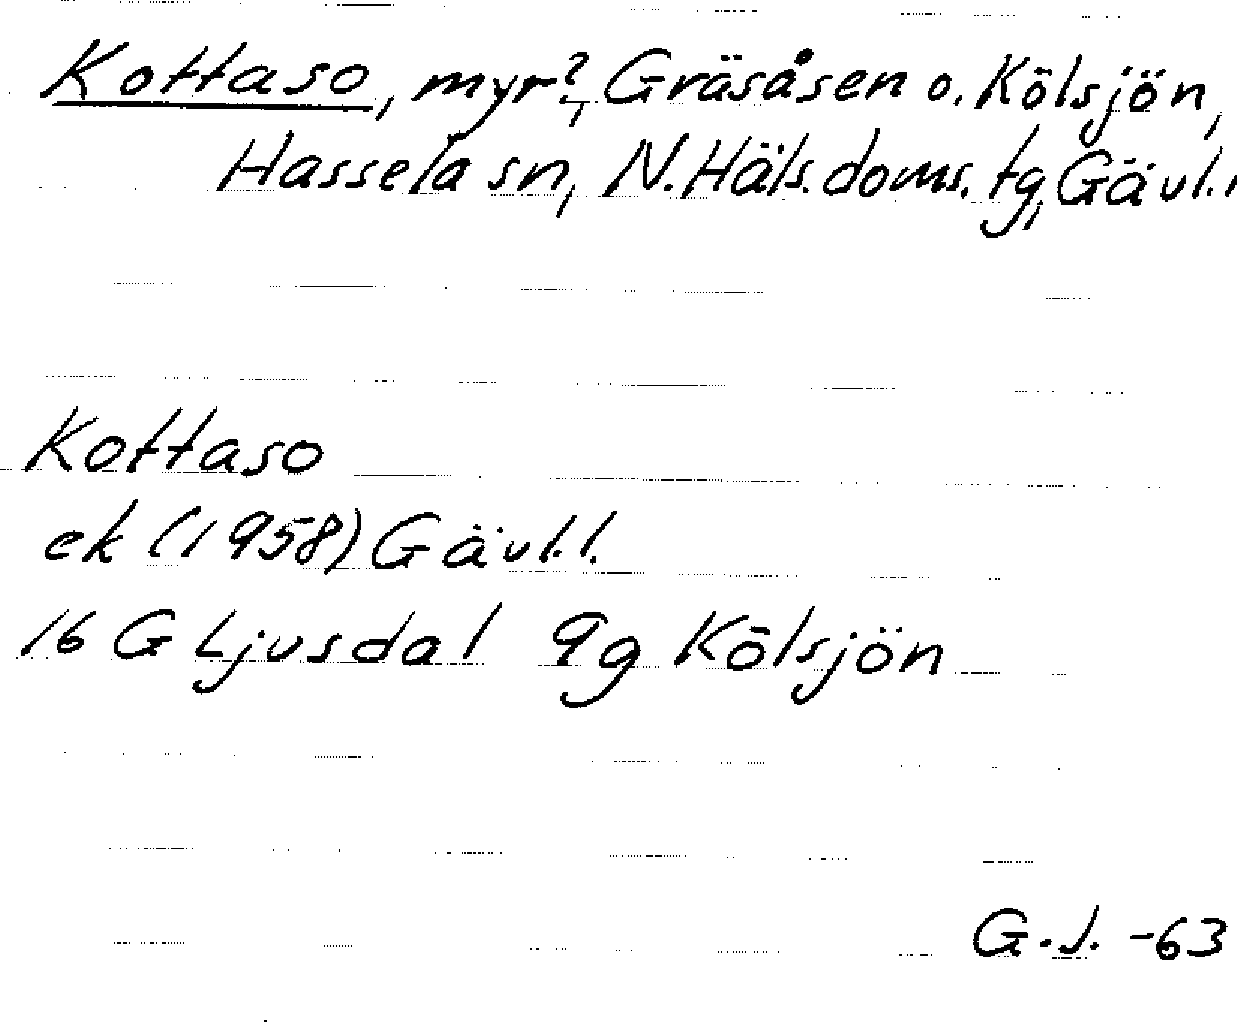 Kottaso, myr?, Gräsåsen o. Kölsjön,
Hassela sn, N. Häls. doms. tg, Gävl. l
Kottaso
ek (1958) Gävl. l.
16 G Ljusdal 9g Kölsjön
G. J. -63